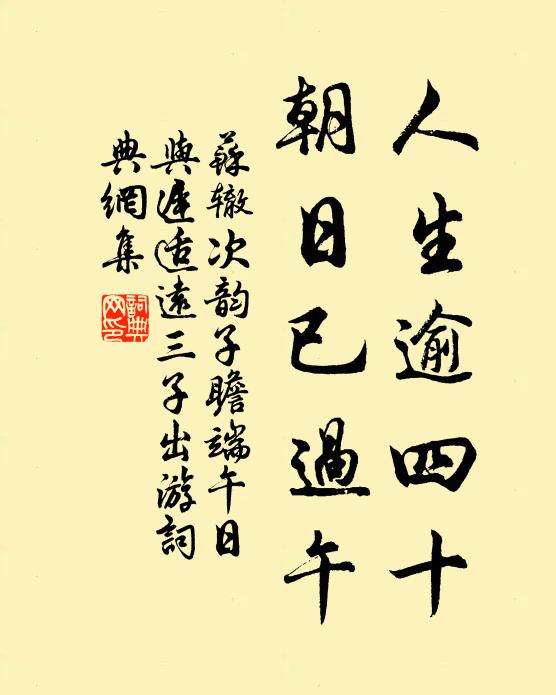 人生逾四十
朝日已過午
蘇辙次韵子瞻端午日
與遲适遠三子出游詞
典網集
詞典
网印